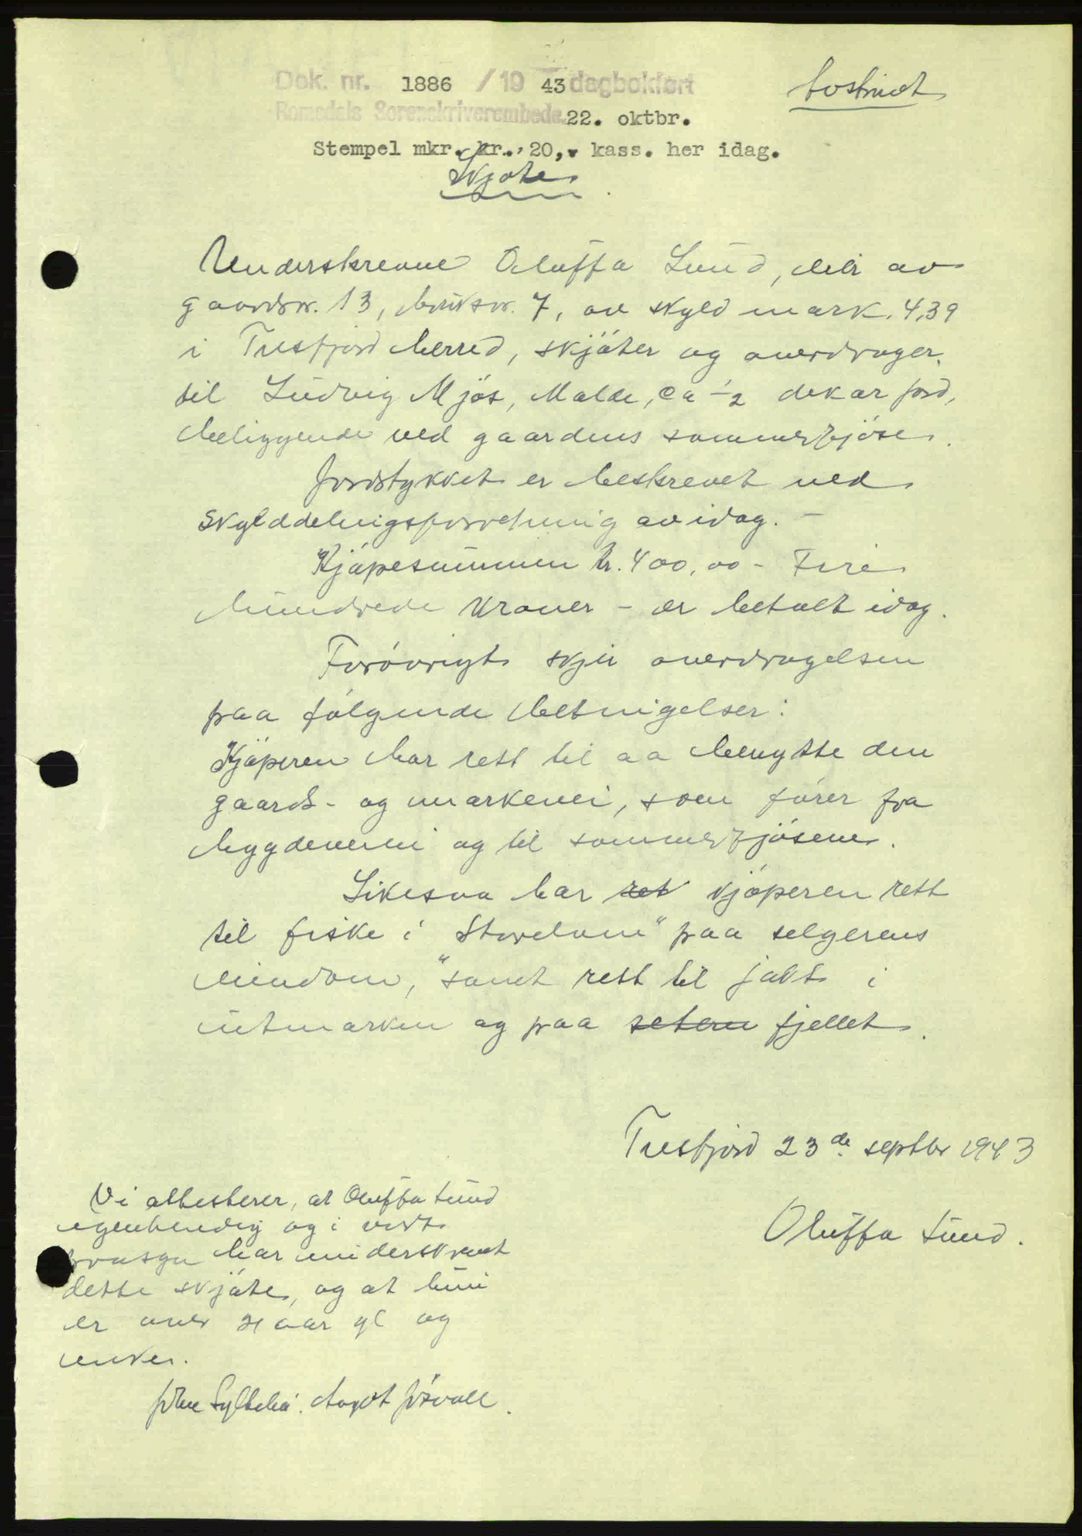 Dok. nr. 1886 / 19 43 dagbokført
Romsdals Sorenskriverembede 22. oktbr.
Stempel mkr. kr. 20,- kass. her idag.
Skjøte
Underskrevne Oluffa Lund, eier av
gaardsnr. 13, bruksnr. 7, av skyld mark. 4,39
i Tresfjord herred, skjøter og overdrager
til Ludvig Mjøs, Molde, ca ½ dekar jord,
beliggende ved gaardens sommerfjøse.
Jordstykket er beskrevet ved
skylddelingsforretning av idag. -
Kjøpesummen kr. 400,00 - Fire
hundrede kroner - er betalt idag.
Forøvrigt skjer overdragelsen
paa følgende betingelser:
Kjøperen har rett til aa benytte den
gaards- og markevei, som fører fra
bygdeveien og til sommerfjøsene.
Likesaa har ret kjøperen rett
til fiske i "Storelven" paa selgerens
eiendom, samt rett til jakt i
utmarken og paa setern fjellet.
Tresfjord 23de septbr 1943
Oluffa Lund.
Vi attesterer, at Oluffa Lund
egenhendig og i vort
paasyn har underskrevet
dette skjøte, og at hun
er over 21 aar gl og
enke.